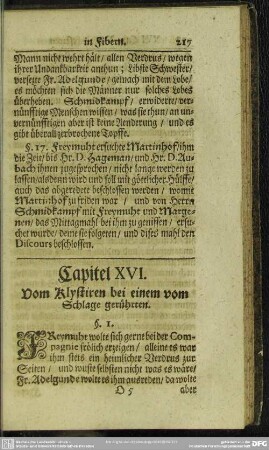 in Fibern. 217
Mann nicht wehrt hält/ allen Verdrus/ wegen
ihrer Undankbarkeit anthun; Libste Schwester/
versezte Fr. Adelgunde/ gemach mit dem Lobe/
es möchten sich die Männer nur solches Lobes
überheben. Schmidkampf/ erwiderte/ ver-
nünftige Menschen wissen/ was sie thun/ an un-
vernünftigen aber ist keine Aenderung/ und es
gibt überall zerbrochene Töpffe.
§. 17. Freymuht ersuchte Martinhof/ ihm
die Zeit/ bis Hr. D. Hageman/ und Hr. D. Au-
bach ihnen zugesprochen/ nicht lange werden zu
lassen/ alsdenn wird und soll mit göttlicher Hülffe/
auch das abgeredete beschlossen werden/ womit
Martinhof zu friden war/ und von Herrn
Schmidkampf mit Freymuht und Marge-
nen/ das Mittagsmahl bei ihm zu genissen/ ersu-
chet wurde/ deme sie folgeten/ und dises mahl den
Discours beschlossen.
Capitel XVI.
Vom Klystiren bei einem vom
Schlage gerührten.
§. 1.
FReymuht wolte sich gerne bei der Com-
pagnie frölich erzeigen/ alleine es war
ihm stets ein heimlicher Verdrus zur
Seiten/ und wuste selbsten nicht was es wäre/
Fr. Adelgunde wolte es ihm ausreden/ da wolte
O 5 aber